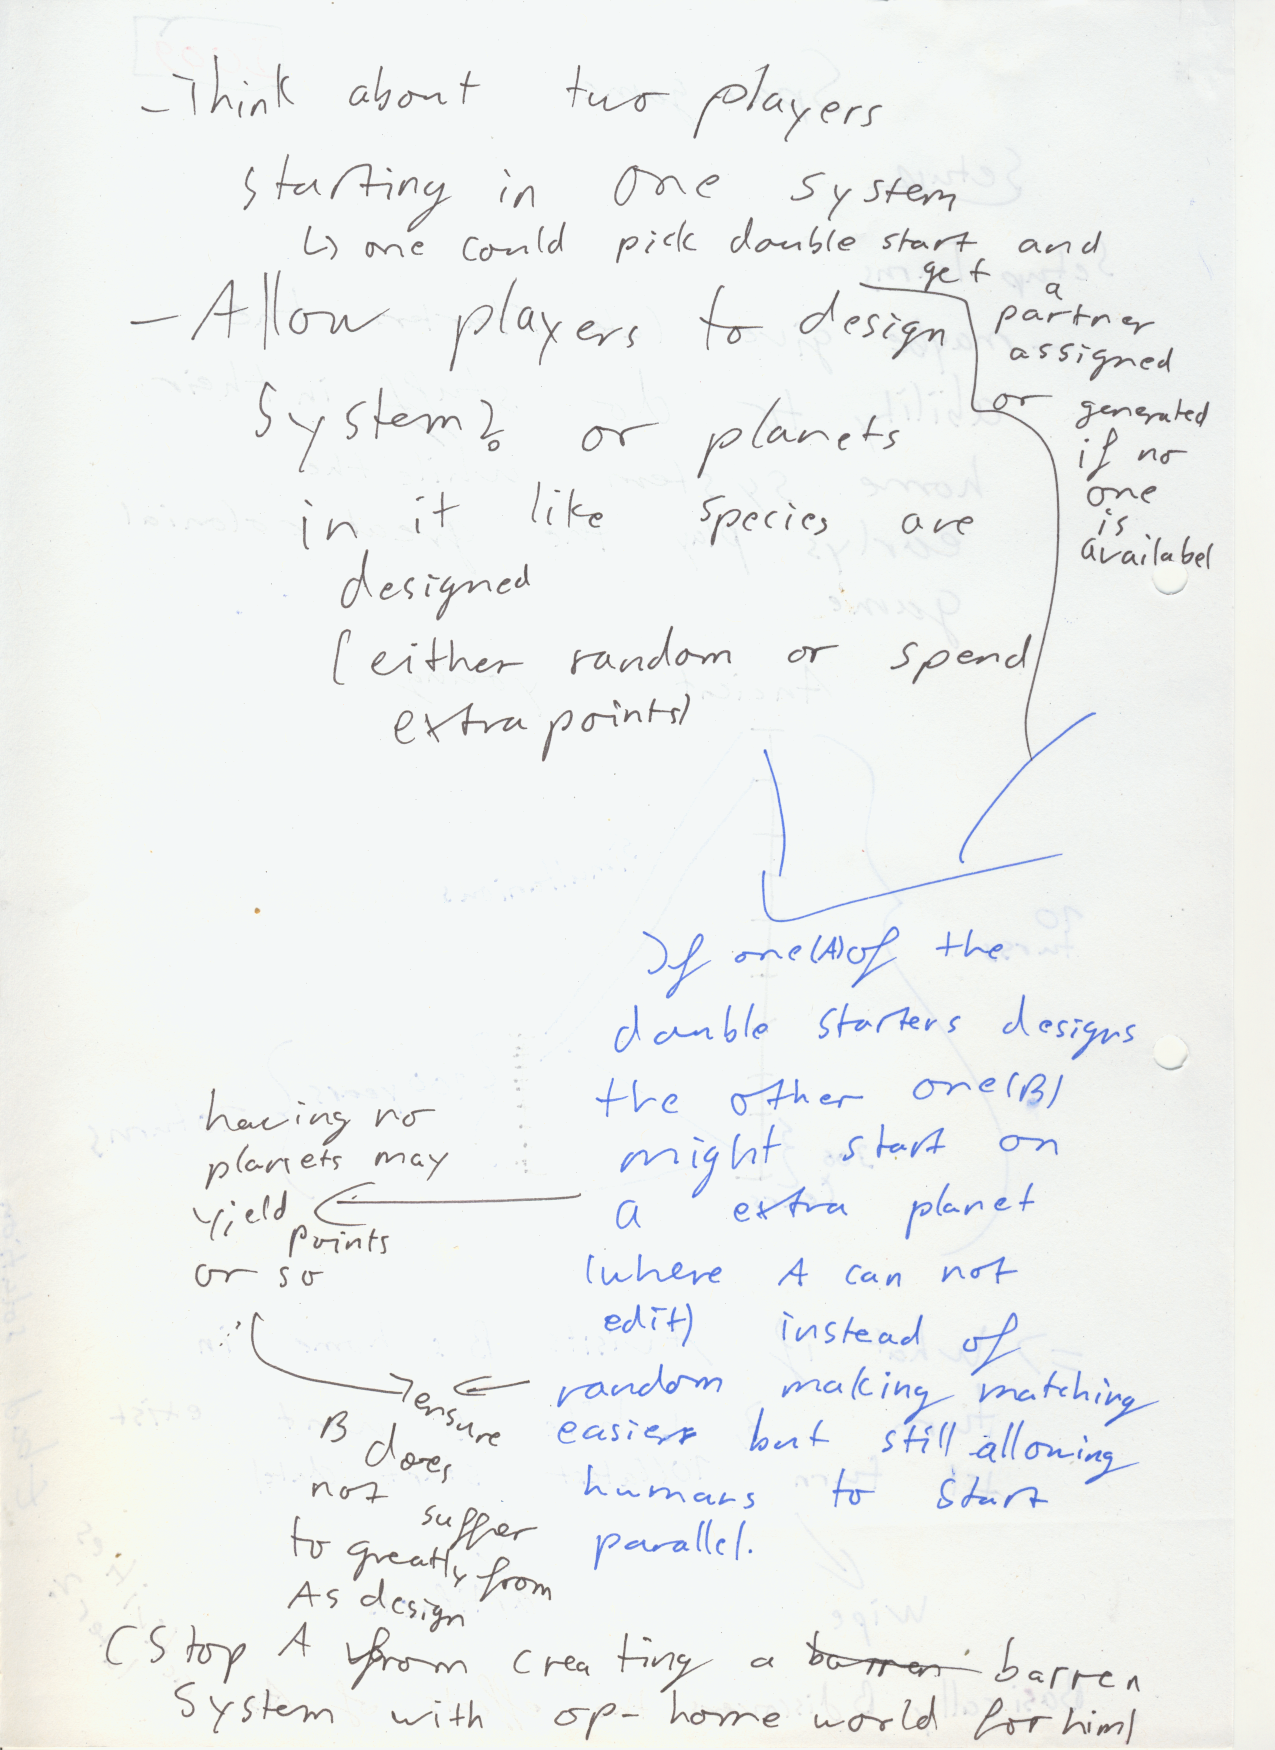 - Think about two players
starting in one system
↳ one could pick double start and
get a
partner
assigned
or generated
if no
one
is
availabel
- Allow players to design
System? or planets
in it like species are
designed
(either random or spend
extra points)
If one (A) of the
double starters designs
the other one (B)
might start on
a extra planet
(where A can not
edit) instead of
random making matching
easier but still allowing
humans to start
parallel.
having no
planets may
yield
points
or so
ensure
B does
not suffer
to greatly from
As design
(Stop A from creating a barren barren
System with op-home world for him)